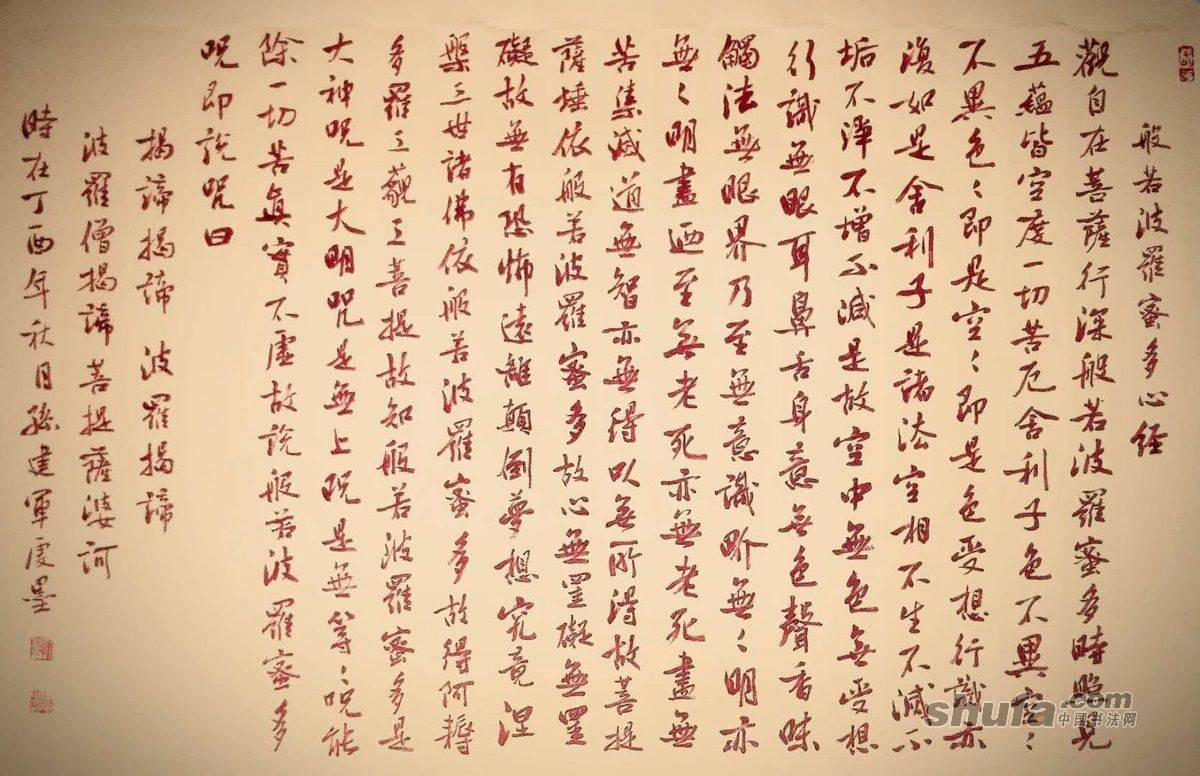 般若波羅蜜多心経
觀自在菩薩行深般若波羅蜜多時照見
五蘊皆空度一切苦厄舍利子色不異空〻
不異色〻即是空〻即是色受想行識亦
復如是舍利子是諸法空相不生不滅不
垢不淨不增不減是故空中無色無受想
行識無眼耳鼻舌身意無色聲香味
觸法無眼界乃至無意識界無〻明亦
無〻明盡廼至無老死亦無老死盡無
苦集滅道無智亦無得以無所得故菩提
薩埵依般若波羅蜜多故心無罣礙無罣
礙故無有恐怖遠離顛倒夢想究竟涅
槃三世諸佛依般若波羅蜜多故得阿耨
多羅三藐三菩提故知般若波羅蜜多是
大神咒是大明咒是無上咒是無等〻咒能
除一切苦真實不虛故説般若波羅蜜多
咒即説咒曰
揭諦揭諦 波羅揭諦
波羅僧揭諦菩提薩婆訶
時在丁酉年秋月孫建軍虔墨
shufa.com
中国书法网